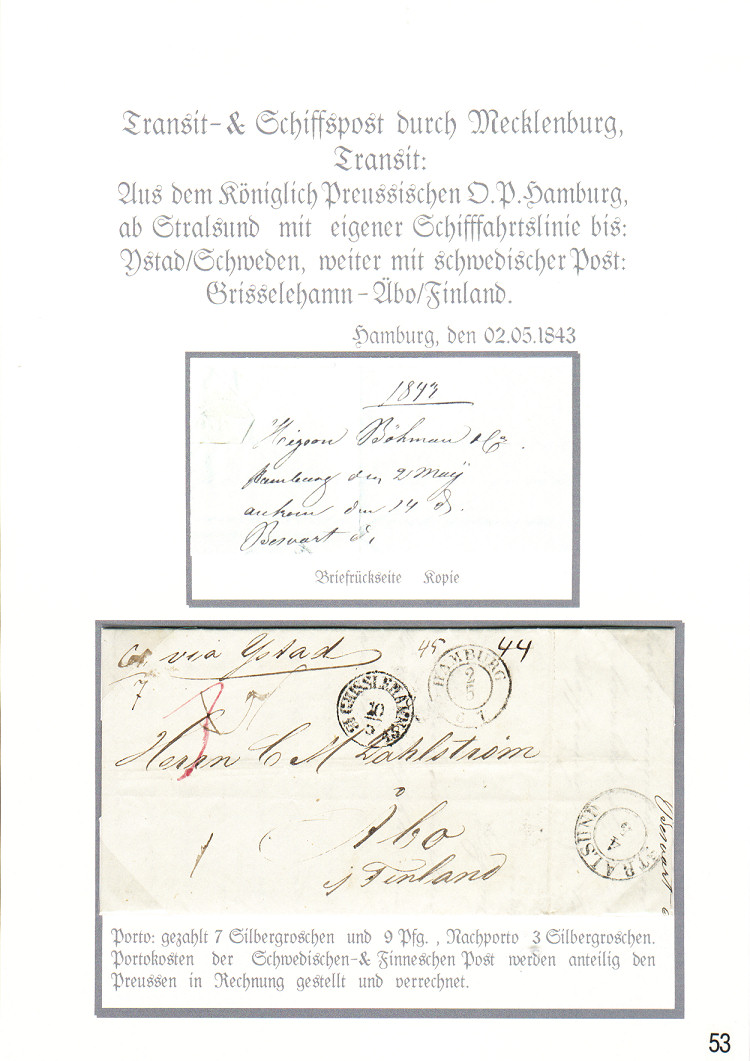 Transit-& Schiffspost durch Mecklenburg,
Transit:
Aus dem Königlich Preussischen O.P.Hamburg,
ab Stralsund mit eigener Schifffahrtslinie bis:
Ystad/Schweden, weiter mit schwedischer Post:
Grisselehamn-Äbo/Finland.
Hamburg, den 02.05.1843
1843
Böhman & Co.
Hamburg den 2 Maij
ankom den 14 d.
Besvart d.
Briefrückseite Kopie
via Ystad
45
44
7
HAMBURG
2
5
GRISSLEHAMN
10
5
Herrn C M Dahlström
Åbo
Finland
STRALSUND
Besvart
Porto: gezahlt 7 Silbergroschen und 9 Pfg. , Nachporto 3 Silbergroschen.
Portokosten der Schwedischen-& Finneschen Post werden anteilig den
Preussen in Rechnung gestellt und verrechnet.
53